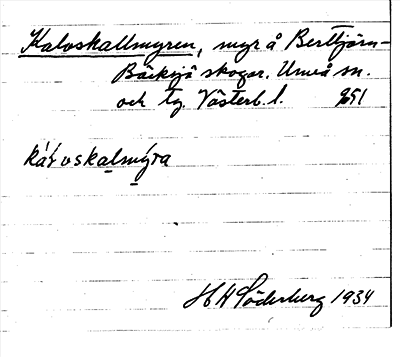 Kaloskallmyren, myr å Berttjärn-
Bäcksjö skogar. Umeå sn.
och tg. Västerb. l. 951
káłoskalmýra
H H Söderberg 1934